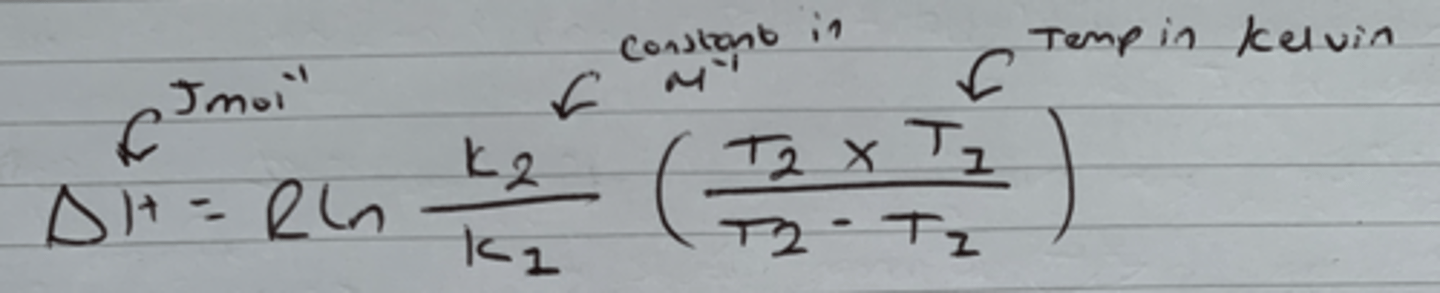 Jmol⁻¹ Constant in M⁻¹ Temp in kelvin
ΔH = R ln K₂/K₁ (T₂ × T₁ / T₂ - T₁)